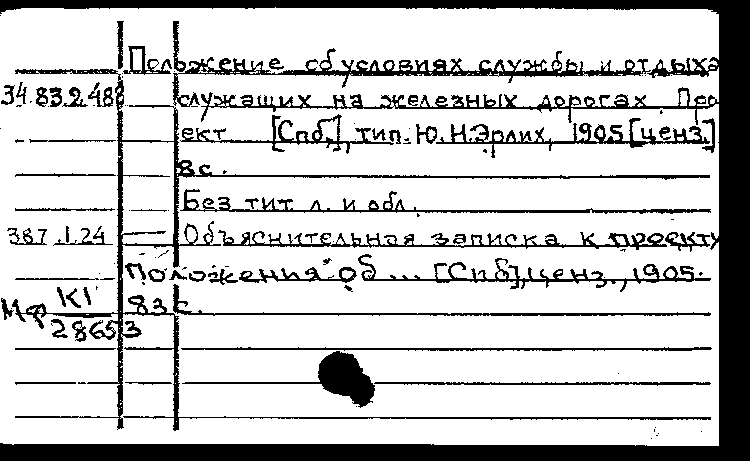 Положение об условиях службы и отдыха
34.83.2.488 служащих на железных дорогах. Про
ект [Спб.], тип. Ю.Н.Эрлих, 1905 [ценз.]
8 с.
Без тит л. и обл.
387.1.24 — Объяснительная записка к проекту
"Положения" об ... [Спб], ценз., 1905.
Мф К1/28653 83 с.